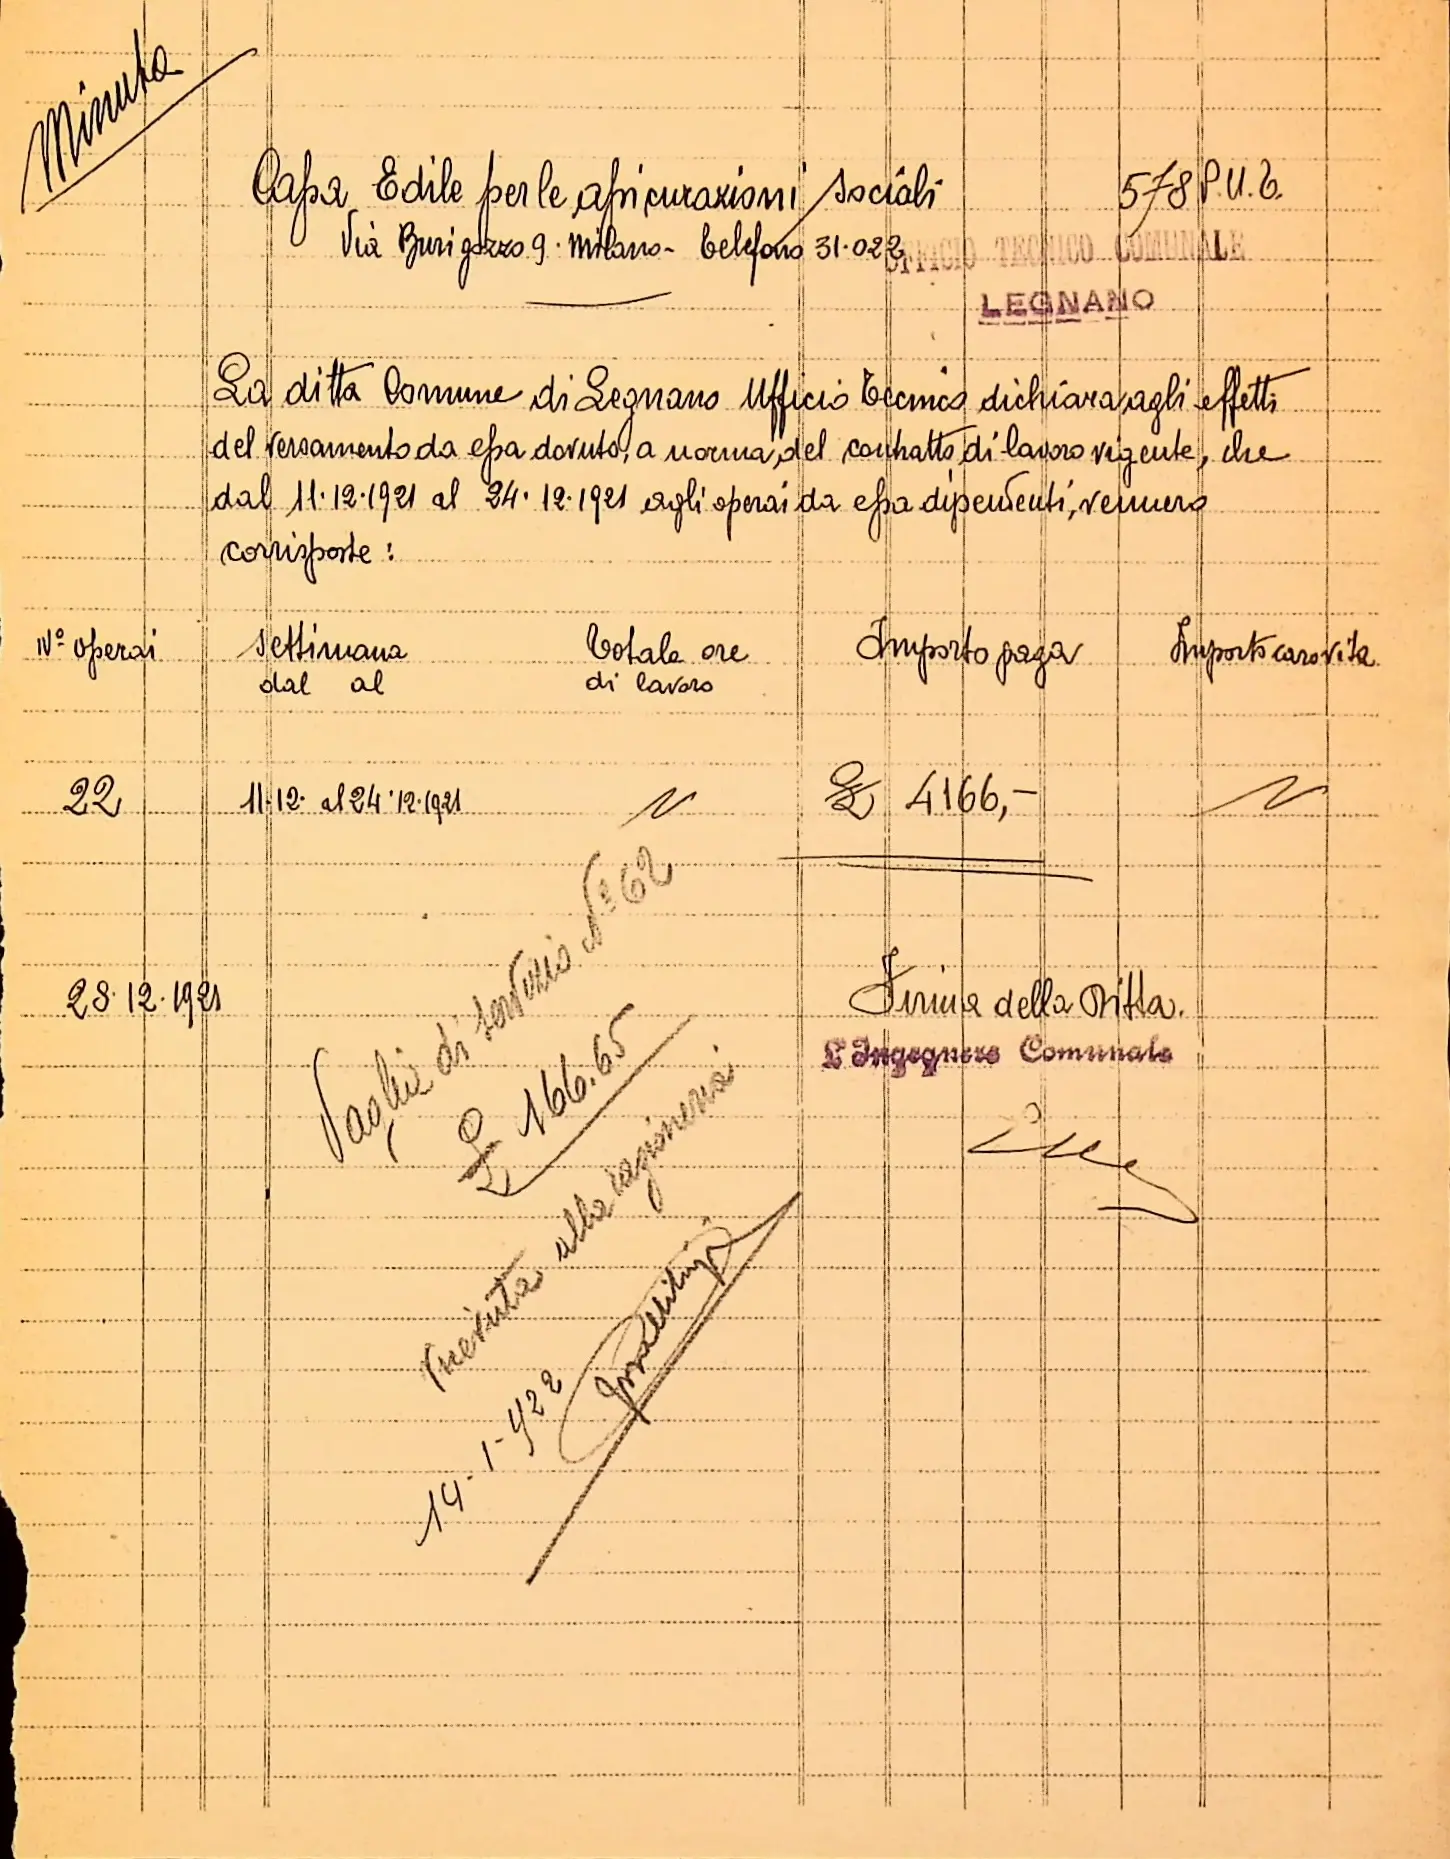 Minuta
Cassa Edile per le assicurazioni sociali
578 P.U.T.
Via Burigozzo 9 · Milano - Telefono 31·022
UFFICIO TECNICO COMUNALE
LEGNANO
La ditta Comune di Legnano Ufficio Tecnico dichiara, agli effetti
del versamento da essa dovuto, a norma del contratto di lavoro vigente, che
dal 11·12·1921 al 24·12·1921 agli operai da essa dipendenti, vennero
corrisposte:
N° operai Settimana Totale ore Importo paga Importo carovita
dal al di lavoro
22 11·12· al 24·12·1921 £ 4166,-
28·12·1921
Firma della Ditta.
L'Ingegnere Comunale
Vaglia di servizio N° 62
£ 166.65
alla ragioneria
14-1-922